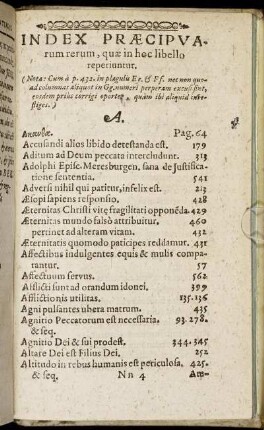 INDEX PRÆCIPVA-
rum rerum, quæ in hoc libello
reperiuntur.
(Nota: Cum à p. 432. in plagulis Ee. & Ff. nec non quo-
ad columnas aliquot in Gg, numeri perperam excusi sint,
eosdem prius corrigi oportet, quàm ibi aliquid inve-
stiges.)
A.
Pag. 64
Accusandi alios libido detestanda est. 179
Aditum ad Deum peccata intercludunt. 313
Adolphi Episc. Meresburgen. sana de Justifica-
tione sententia. 541
Adversi nihil qui patitur, infelix est. 213
Æsopi sapiens responsio. 428
Æternitas Christi vitę fragilitati opponẽda. 429
Æternitas mundo falsò attribuitur, 460
pertinet ad alteram vitam. 432
Æternitatis quomodo participes reddamur. 431
Affectibus indulgentes equis & mulis compa-
rantur. 57
Affectuum servus. 562
Afflicti sunt ad orandum idonei. 399
Afflictionis utilitas. 135. 136
Agni pulsantes ubera matrum. 435
Agnitio Peccatorum est necessaria. 93. 278.
& seq.
Agnitio Dei & sui prodest. 344. 345
Altare Dei est Filius Dei. 252
Altitudo in rebus humanis est periculosa. 425.
& seq. Nn 4